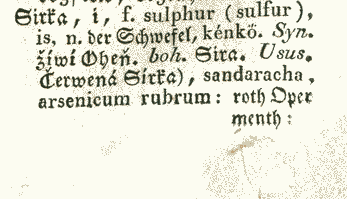 Sirka, i, f. sulphur (sulfur),
is, n. der Schwefel, kénkő. Syn.
žiwi Oheň. boh. Sira. Usus.
Čerwená Sírka), sandaracha,
arsenicum rubrum: roth Oper
menth: